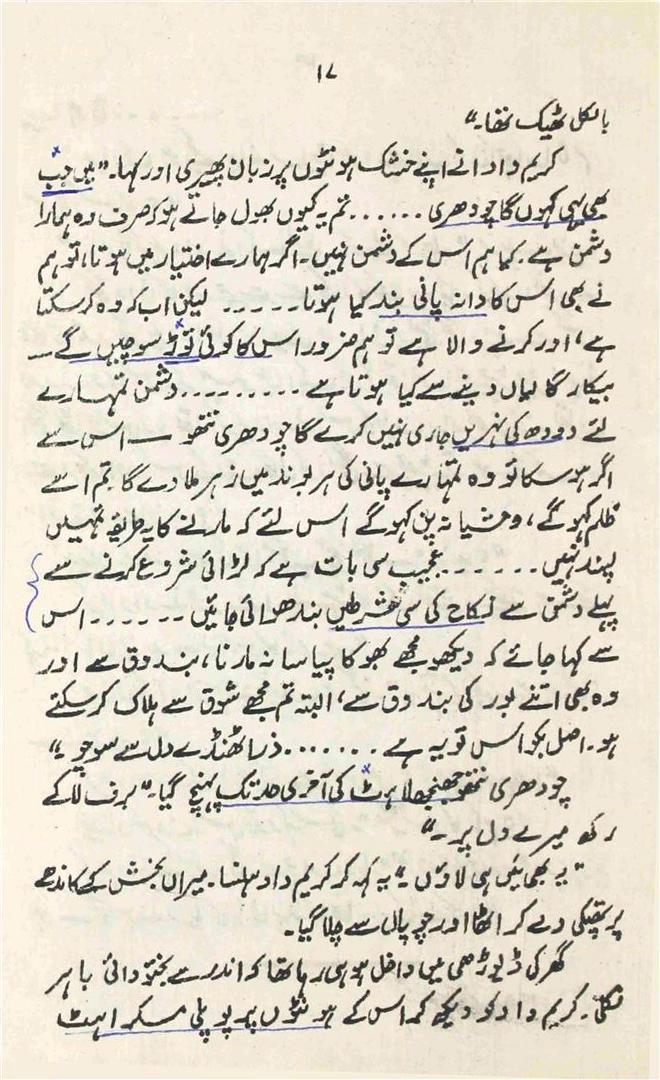 ۱۷
بالکل ٹھیک تھا۔“
کریم داد نے اپنے خشک ہونٹوں پر زبان پھیری اور کہا۔ ”میں جب
بھی یہی کہوں گا چودھری ...... تم یہ کیوں بھول جاتے ہو کہ صرف وہ ہمارا
دشمن ہے۔ کیا ہم اس کے دشمن نہیں۔ اگر ہمارے اختیار میں ہوتا، تو ہم
نے بھی اس کا دانہ پانی بند کیا ہوتا ..... لیکن اب کہ وہ کر سکتا
ہے، اور کرنے والا ہے تو ہم ضرور اس کا کوئی توڑ سوچیں گے ــ
بیکار گالیاں دینے سے کیا ہوتا ہے ......... دشمن تمہارے
لئے دودھ کی نہریں جاری نہیں کرے گا چودھری نتھو ــ اس سے
اگر ہو سکا تو وہ تمہارے پانی کی ہر بوند میں زہر ملا دے گا۔ تم اسے
ظلم کہو گے، وحشیانہ پن کہو گے اس لئے کہ مارنے کا یہ طریقہ تمہیں
پسند نہیں ...... عجیب سی بات ہے کہ لڑائی شروع کرنے سے
پہلے دشمن سے نکاح کی سی شرطیں بندھوائی جائیں ...... اس
سے کہا جائے کہ دیکھو مجھے بھوکا پیاسا نہ مارنا، بندوق سے اور
وہ بھی اتنے بور کی بندوق سے، البتہ تم مجھے شوق سے ہلاک کر سکتے
ہو۔ اصل بکواس تو یہ ہے ....... ذرا ٹھنڈے دل سے سوچو۔“
چودھری نتھو جھنجھلاہٹ کی آخری حد تک پہنچ گیا۔ ”برف لا کے
رکھ میرے دل پر۔“
”یہ بھی میں ہی لاؤں۔“ یہ کہہ کر کریم داد ہنسا۔ میراں بخش کے کاندھے
پر تھپکی دے کر اٹھا اور چوپال سے چلا گیا۔
گھر کی ڈیوڑھی میں داخل ہو ہی رہا تھا کہ اندر سے بختو دائی باہر
نکلی۔ کریم داد کو دیکھ کر اس کے ہونٹوں پر پوپلی مسکراہٹ